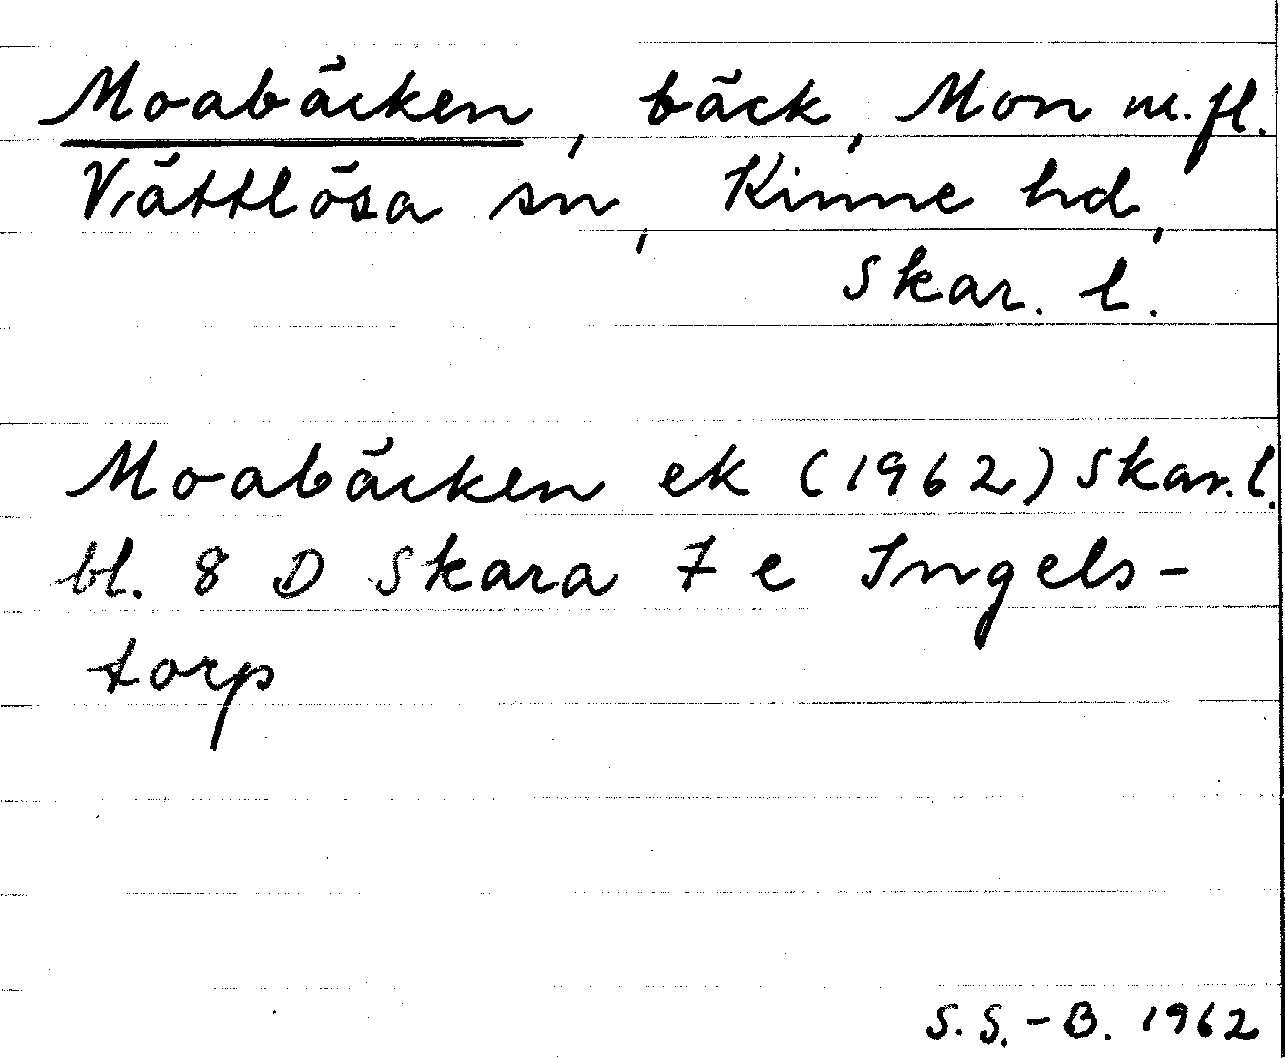 Moabäcken, bäck, Mon m.fl.
Vättlösa sn, Kinne hd,
Skar. l.
Moabäcken ek (1962) Skar. l.
bl. 8 D Skara 7 e Ingels-
torp
S. S.-B. 1962